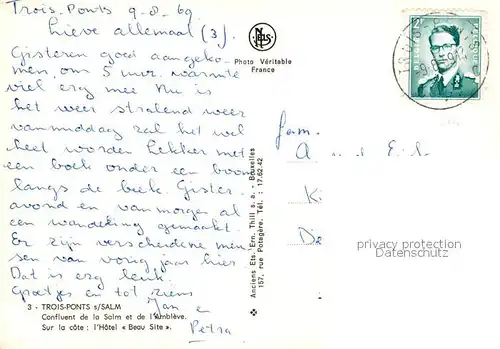 Trois-Ponts 9-8-69
Lieve allemaal (3).
Gisteren goed aangeko-
men, om 5 uur. warmte
viel erg mee Nu is
het weer stralend weer
vanmiddag zal het wel
heet worden Lekker met
een boek onder een boom
langs de beek. Gister-
avond en vanmorgen al
een wandeling gemaakt.
Er zijn verscheidene men-
sen van vorig jaar hier
Dat is erg leuk
Groetjes en tot ziens
Jan e
Petra
3 - TROIS-PONTS s/SALM
Confluent de la Salm et de l'Amblève.
Sur la côte : l'Hôtel « Beau Site ».
NELS
Photo Véritable
France
Anciens Ets. Ern. Thill s. a. - Bruxelles
157, rue Potagère. Tél. : 17.62.42
Fam.
A
Ki
privacy protection
Datenschutz